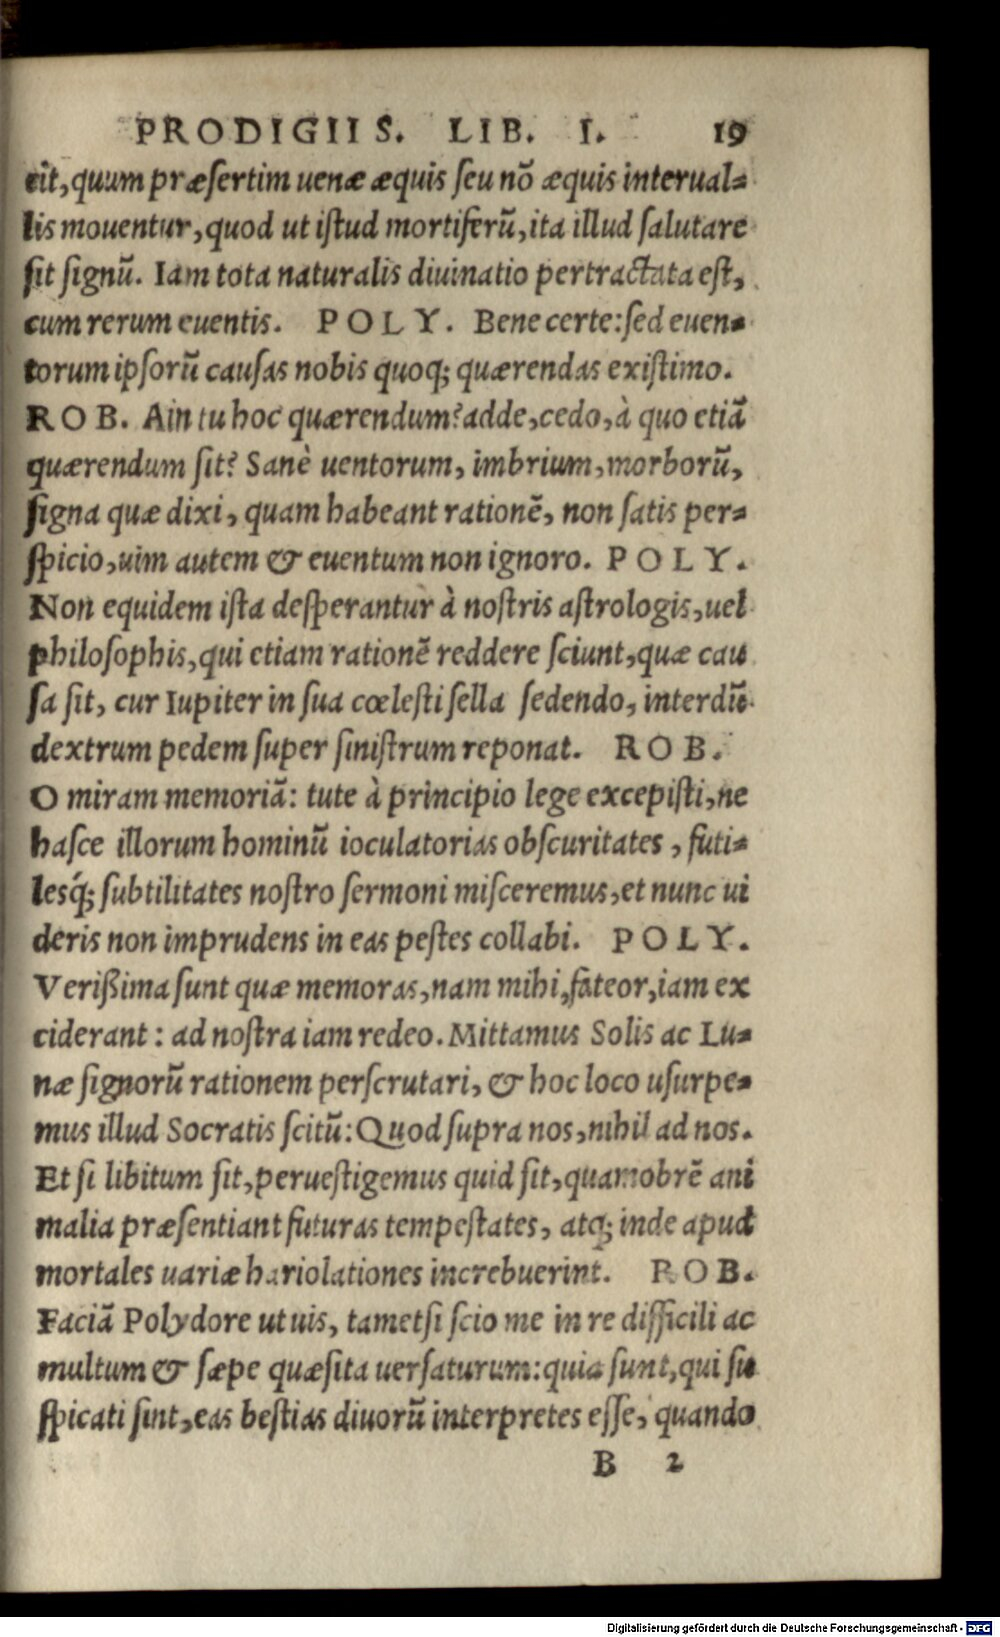 PRODIGIIS. LIB. I. 19
cit, quum præsertim uenæ æquis seu nõ æquis interual=
lis mouentur, quod ut istud mortiferũ, ita illud salutare
sit signũ. Iam tota naturalis diuinatio pertractata est,
cum rerum euentis. POLY. Bene certe: sed euen=
torum ipsorũ causas nobis quoq; quærendas existimo.
ROB. Ain tu hoc quærendum? adde, cedo, à quo etiã
quærendum sit? Sanè uentorum, imbrium, morborũ,
signa quæ dixi, quam habeant rationẽ, non satis per=
spicio, uim autem & euentum non ignoro. POLY.
Non equidem ista desperantur à nostris astrologis, uel
philosophis, qui etiam rationẽ reddere sciunt, quæ cau
sa sit, cur Iupiter in sua cœlesti sella sedendo, interdũ
dextrum pedem super sinistrum reponat. ROB.
O miram memoriã: tute à principio lege excepisti, ne
hasce illorum hominũ ioculatorias obscuritates, futi=
lesq́; subtilitates nostro sermoni misceremus, et nunc ui
deris non imprudens in eas pestes collabi. POLY.
Verißima sunt quæ memoras, nam mihi, fateor, iam ex
ciderant: ad nostra iam redeo. Mittamus Solis ac Lu=
næ signorũ rationem perscrutari, & hoc loco usurpe=
mus illud Socratis scitũ: Quod supra nos, nihil ad nos.
Et si libitum sit, peruestigemus quid sit, quamobrẽ ani
malia præsentiant futuras tempestates, atq; inde apud
mortales uariæ hariolationes increbuerint. ROB.
Faciã Polydore ut uis, tametsi scio me in re difficili ac
multum & sæpe quæsita uersaturum: quia sunt, qui su
spicati sint, eas bestias diuorũ interpretes esse, quando
B 2
Digitalisierung gefördert durch die Deutsche Forschungsgemeinschaft - DFG